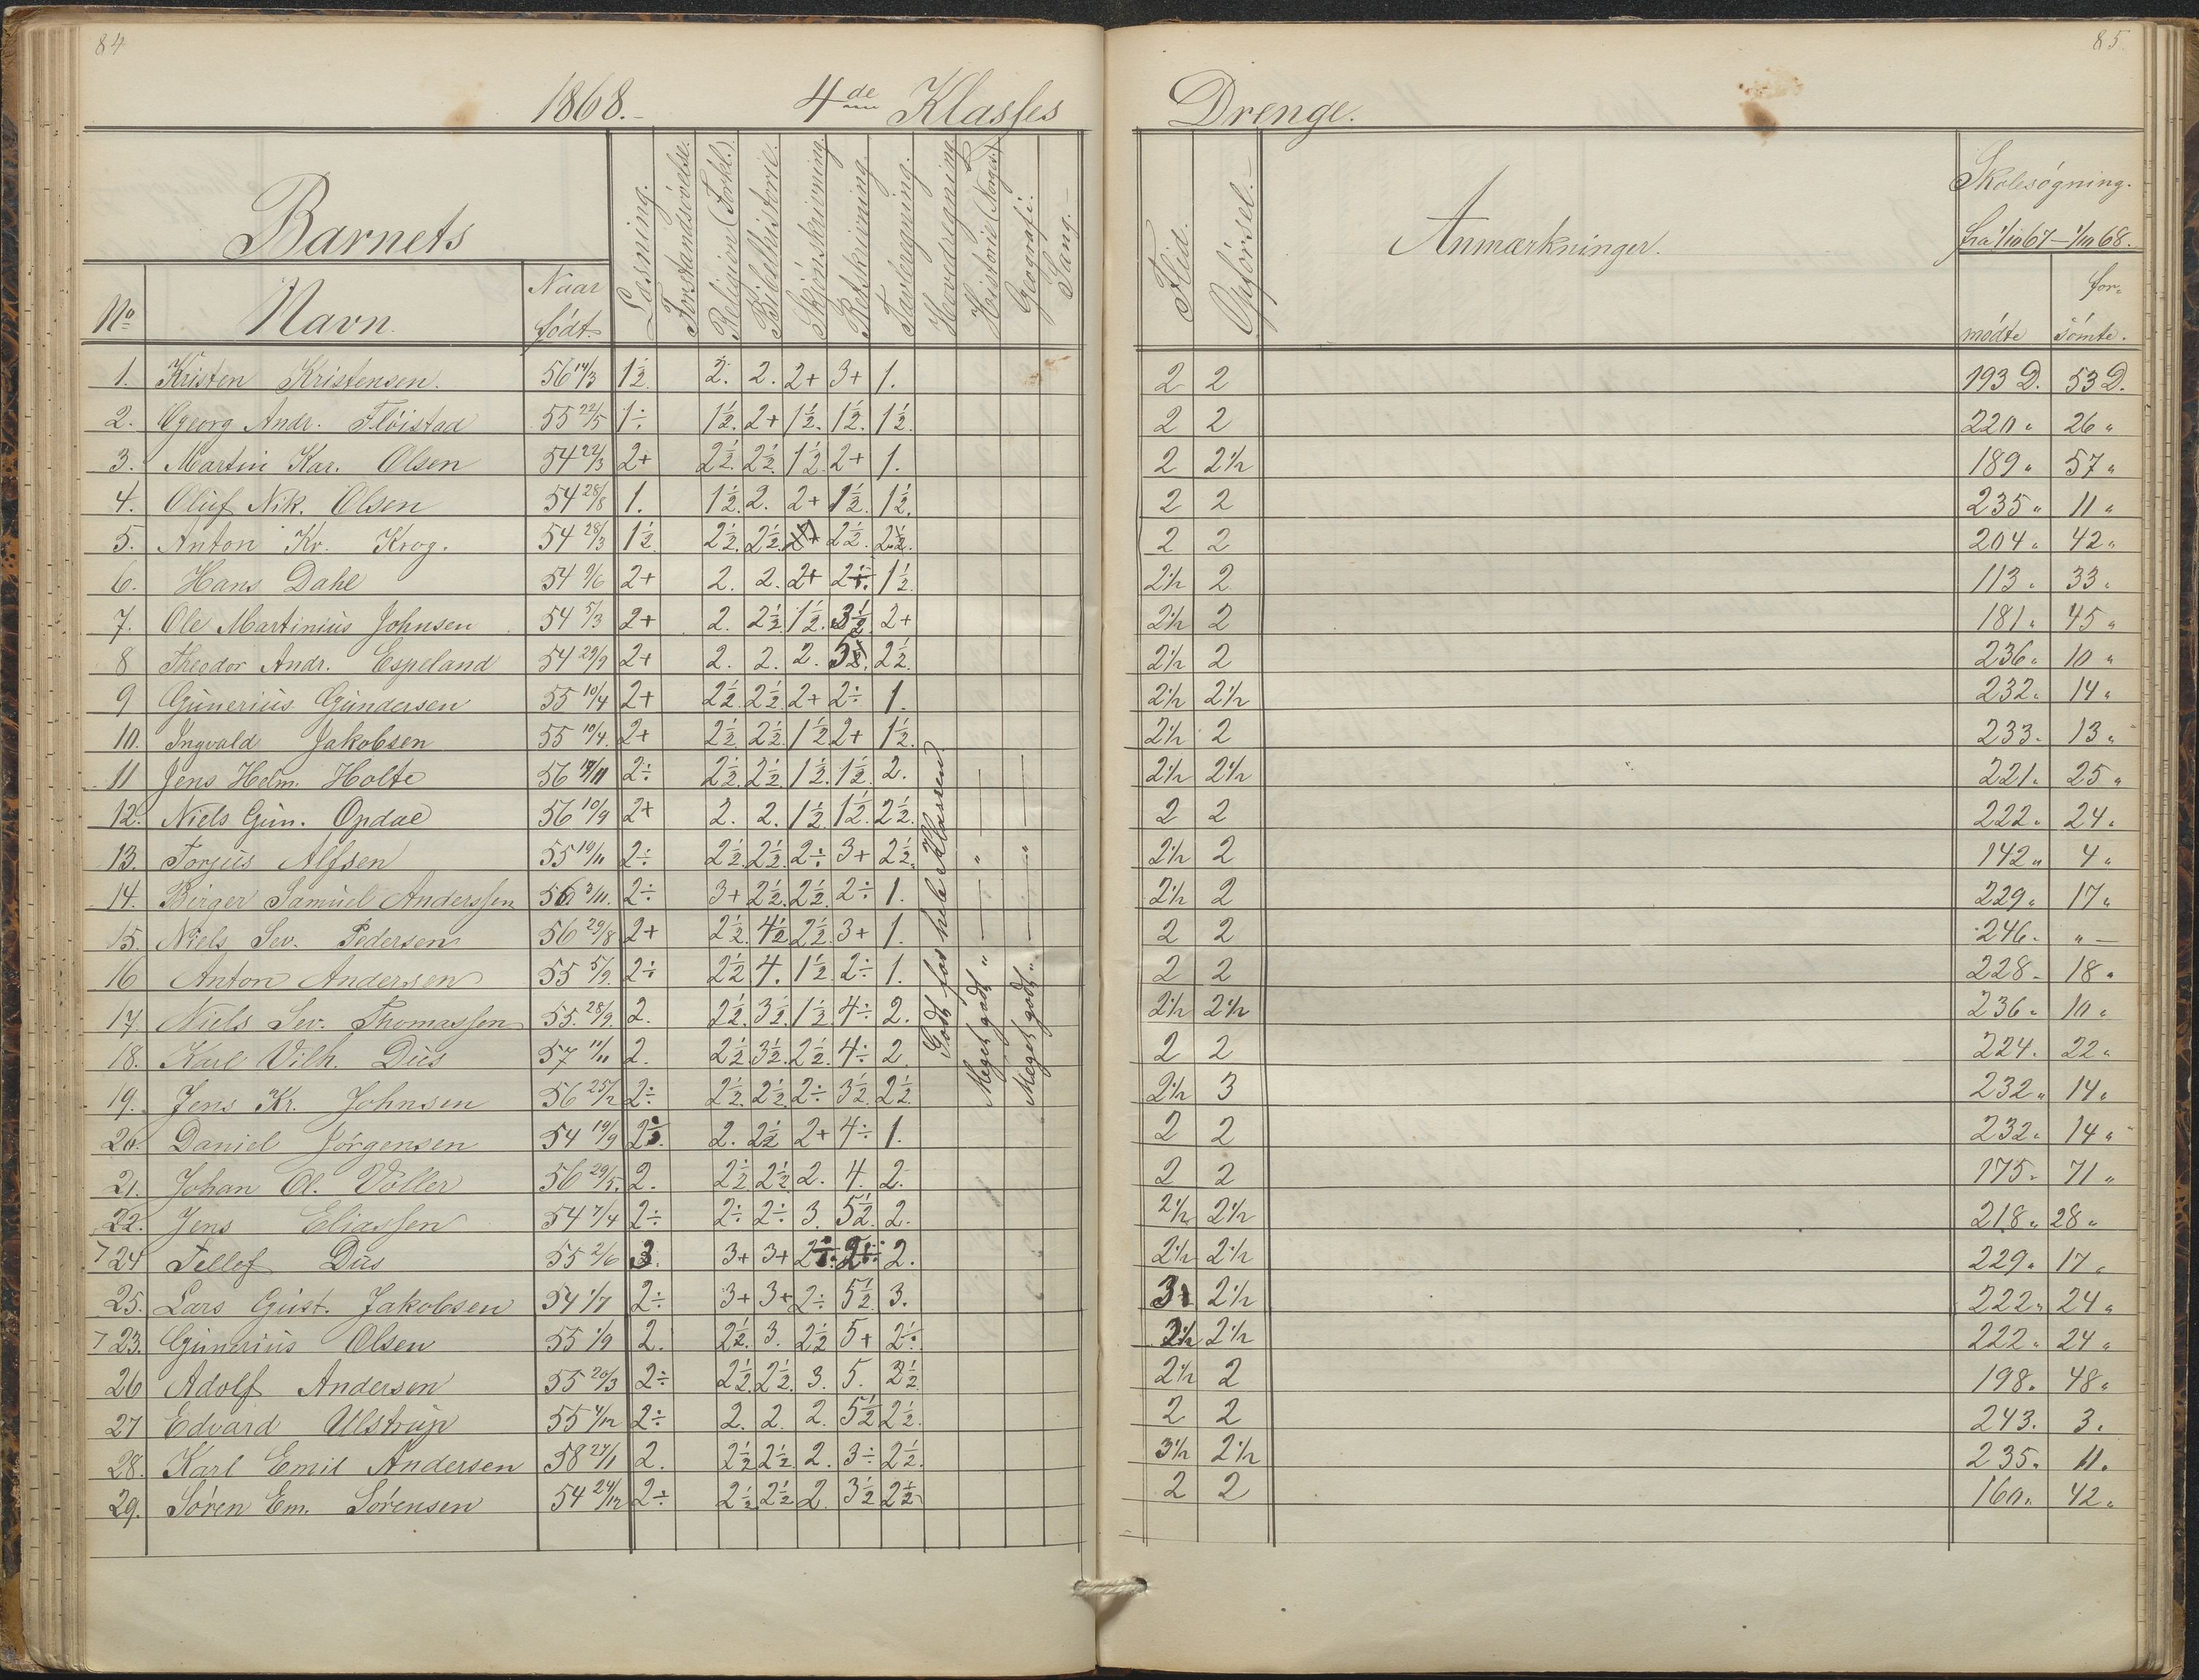 84
85
1868.- 4de Klasses Drenge.
Barnets
No Navn. Naar født.
Læsning.
Forstandsøvelse.
Religion (Forkl.)
Bibelhistorie.
Skjönskrivning.
Retskrivning.
Tavleregning.
Hovedregning
Historie (Norges)
Geografi.
Sang.-
Flid.
Opførsel.-
Anmærkninger.
Skolesøgning.
fra 1/10 67 - 1/10 68.
mødte for-
sömte.
1. Kristen Kristensen. 56 14/3 1½. 2. 2. 2+ 3+ 1. 2 2 193 D. 53 D.
2. Georg Andr. Flöistad 55 22/5 1÷ 1½. 2+ 1½. 1½. 1½. 2 2 220 " 26 "
3. Martin Kar. Olsen 54 22/3 2+ 2½. 2½. 1½. 2+ 1. 2 2½ 189 " 57 "
4. Oluf Nik. Olsen 54 28/8 1. 1½. 2. 2+ 1½. 1½. 2 2 235 " 11 "
5. Anton Kr. Krog. 54 28/3 1½. 2½. 2½. 2½. 2½. 2 2 204 " 42 "
6. Hans Dahl 54 9/6 2+ 2. 2. 2+ 2÷ 1½. 2½ 2 113 " 33 "
7. Ole Martinius Johnsen 54 5/3 2+ 2. 2½. 1½. 3½. 2+ 2½ 2 181 " 45 "
8 Theodor Andr. Espeland 54 29/9 2+ 2. 2. 2. 2½. 2½ 2 236 " 10 "
9 Gunerius Gundersen 55 10/4 2+ 2½. 2½. 2+ 2÷ 1. 2½ 2½ 232 " 14 "
10. Ingvald Jakobsen 55 10/4. 2+ 2½. 2½. 1½. 2+ 1½. 2½ 2 233 " 13 "
11 Jens Helm. Holte 56 2÷ 2½. 2½. 1½. 1½. 2. 2½ 2½ 221 " 25 "
12. Niels Gun. Opdal 56 10/9 2+ 2. 2. 1½. 1½. 2½. 2 2 222 " 24 "
13. Torjus Alfsen 55 19/11 2÷ 2½. 2½. 2÷ 3+ 2½. 2½ 2 142 " 4 "
14. Birger Samuel Anderssen 56 3/11. 2÷ 3+ 2½. 2½. 2÷ 1. 2½ 2 229 " 17 "
15. Niels Sev. Pedersen 56 29/8 2+ 2½. 4½. 2½. 3+ 1. 2 2 246 " " -
16 Anton Andersen 55 5/2. 2÷ 2½ 4. 1½. 2÷ 1. 2 2 228 " 18 "
17. Niels Sev. Thomassen 55 28/9. 2. 2½. 3½. 1½. 4÷ 2. 2½ 2½ 236 " 10 "
18. Karl Vilh. Dus 57 11/11 2. 2½. 3½. 2½. 4÷ 2. 2 2 224 " 22 "
19. Jens Kr. Johnsen 56 25/12 2÷ 2½. 2½. 2÷ 3½. 2½. 2½ 3 232 " 14 "
20. Daniel Jörgensen 54 19/9 2. 2½ 2+ 4÷ 1. 2 2 232 " 14 "
21. Johan Ol. Voller 56 29/5. 2. 2½. 2½. 2. 4. 2. 2 2 175 " 71 "
22. Jens Eliassen 54 7/4 2÷ 2÷ 2÷ 3. 5½. 2. 2½ 2½ 218 " 28 "
7 24 Tellef Dus 55 2/6 3. 3+ 3+ 2÷ 2÷ 2. 2½ 2½ 229 " 17 "
25. Lars Gust. Jakobsen 54 1/7 2÷ 3+ 3+ 2÷ 5½ 3. 3 2½ 222 " 24 "
7 23. Gunerius Olsen 55 1/9 2. 2½. 3. 2½ 5+ 2÷ 2½ 2½ 222 " 24 "
26 Adolf Andersen 55 20/3 2÷ 2½. 2½. 3. 5. 3½ 2½ 2 198 " 48 "
27 Edvard Ulstrup 55 4/12 2÷ 2. 2. 2. 5½ 2½. 2 2 243 " 3 "
28. Karl Emil Andersen 58 27/1 2. 2½. 2½. 2. 3÷ 2½. 3½ 2½ 235 " 11 "
29. Sören Em. Sörensen 54 24/12 2÷ 2½. 2½ 2. 3½ 2½ 2 2 160 " 42 "
Godt for hele Klassen
Meget godt " — " —
Meget godt " — " —